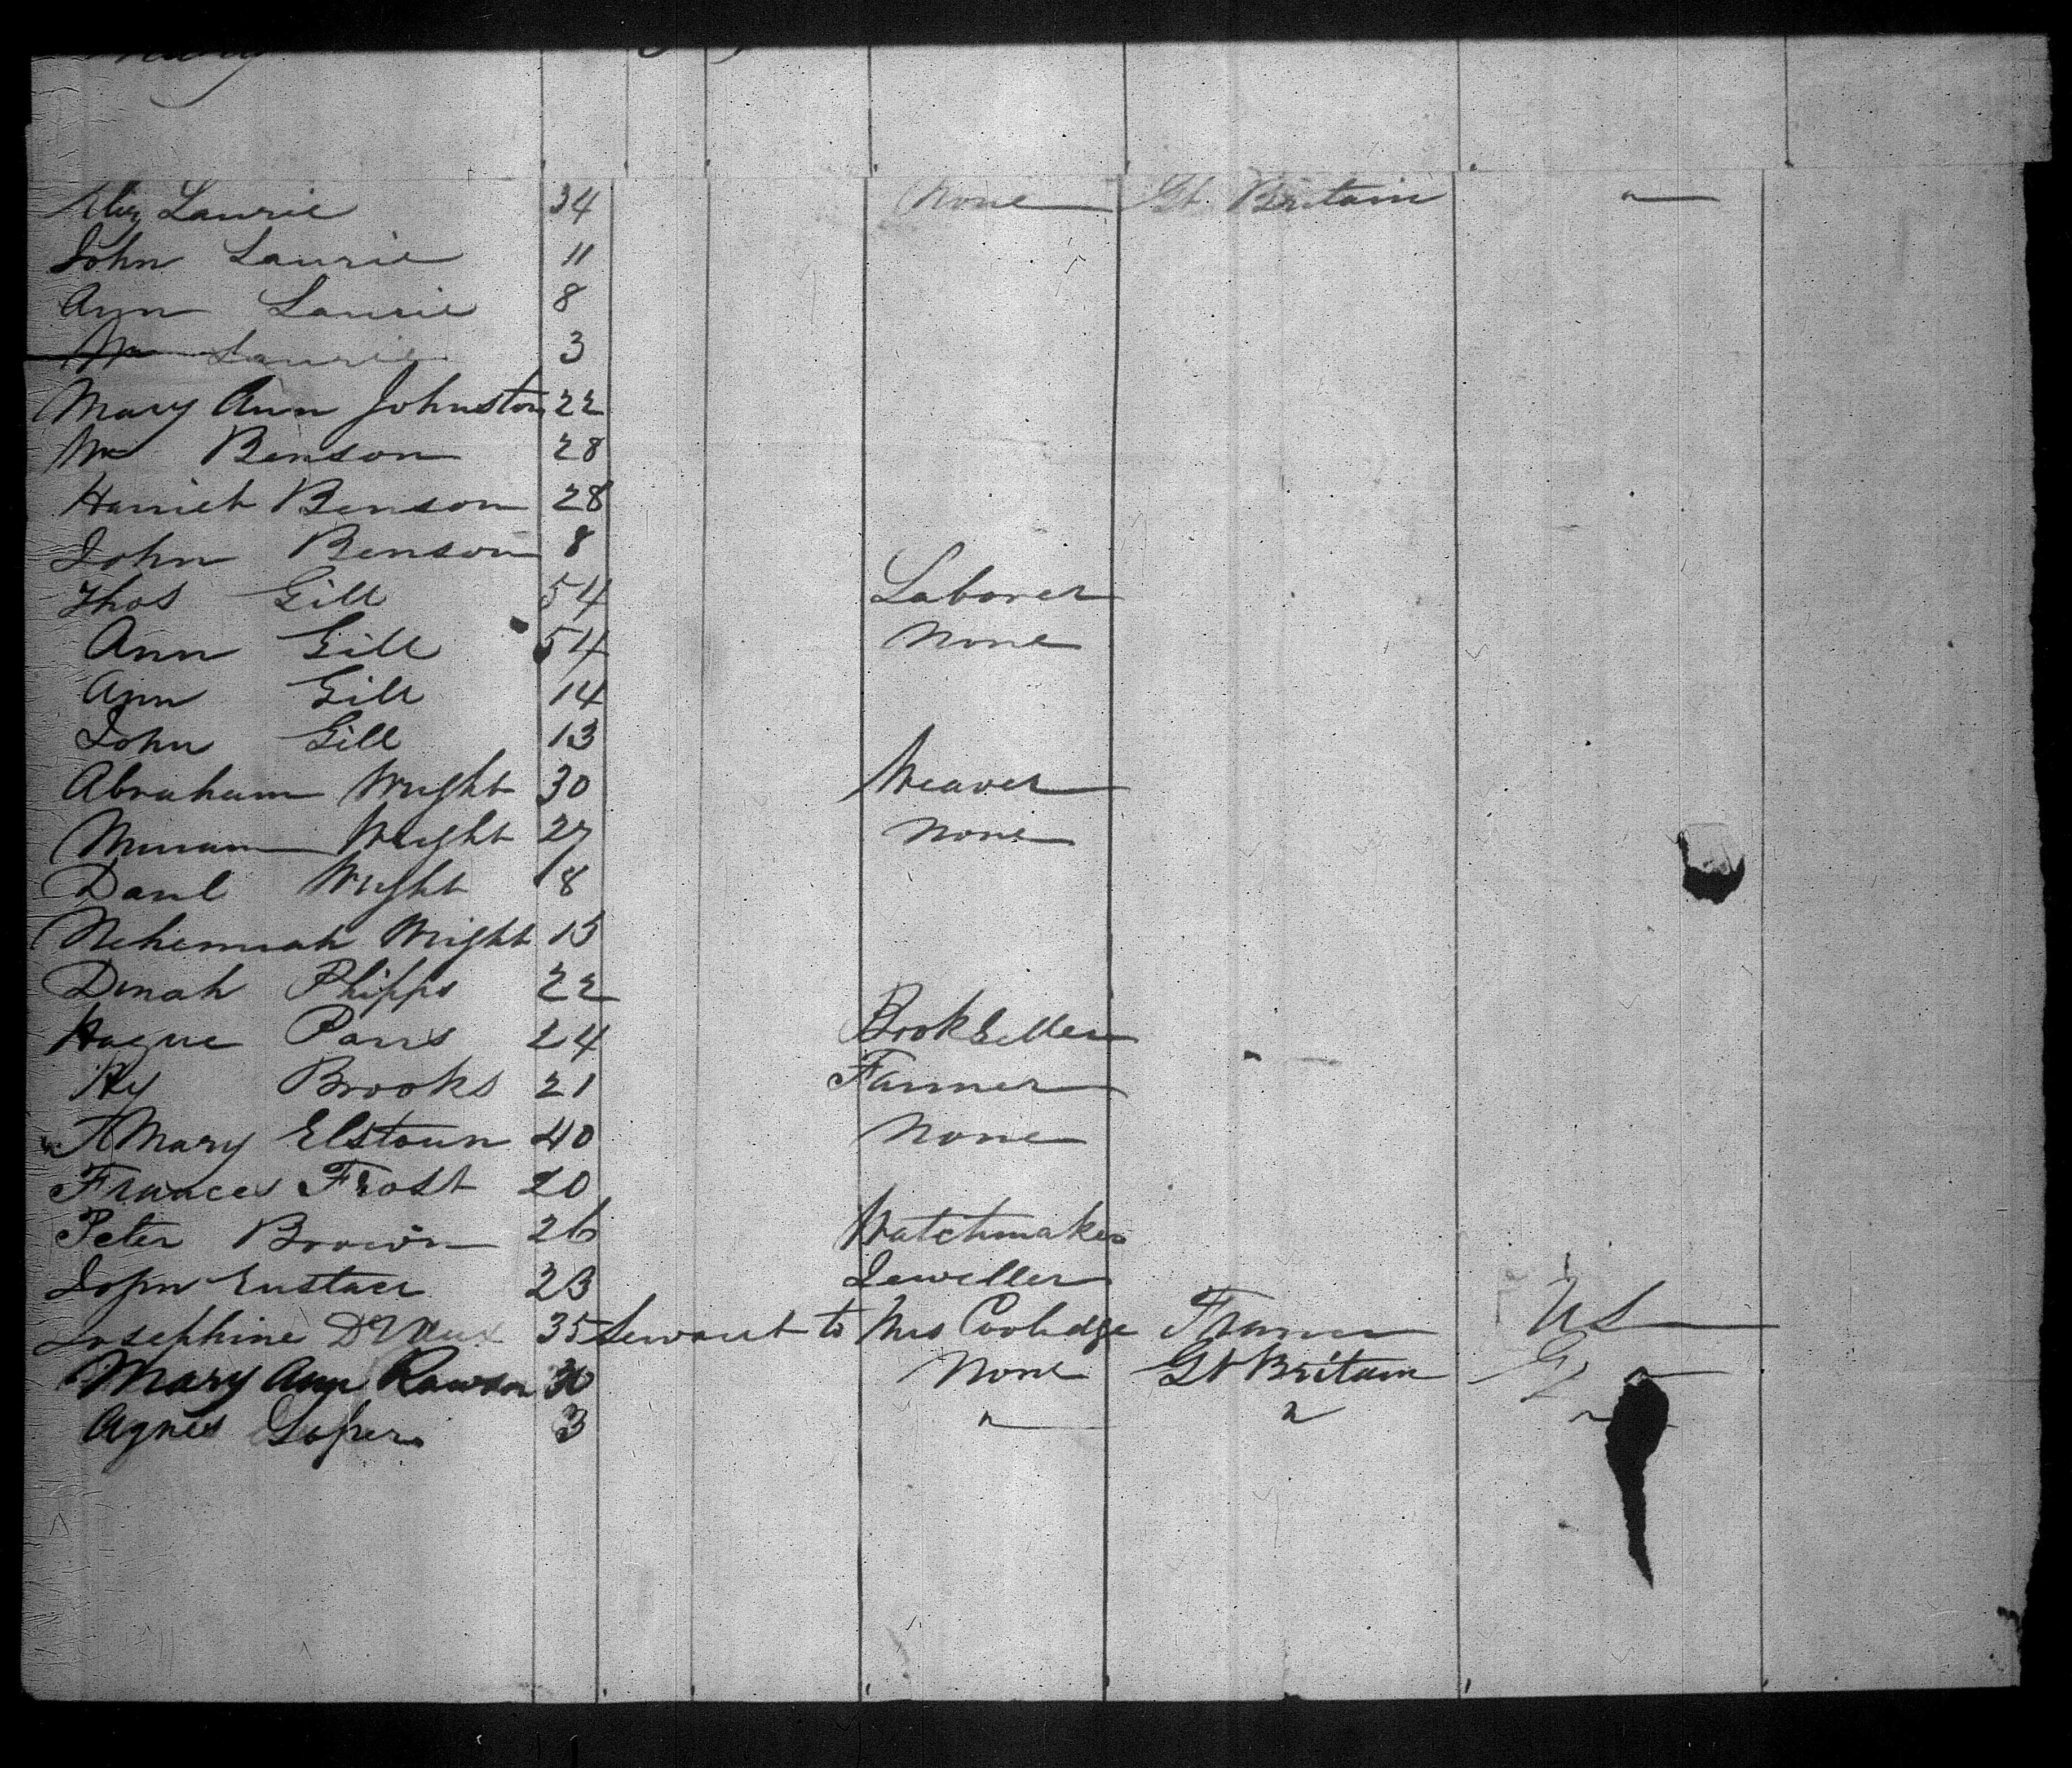 Eliz Laurie 34 None Gt. Britain "
John Laurie 11
Ann Laurie 8
Wm Laurie 3
Mary Ann Johnston 22
Wm Benson 28
Harriet Benson 28
John Benson 8
Thos Gill 54 Laborer
Ann Gill 54 None
Ann Gill 14
John Gill 13
Abraham Wright 30 Weaver
Miriam Wright 27 None
Danl Wright 18
Nehemiah Wright 15
Dinah Phipps 22
Hague Paris 24 Bookseller
Hy Brooks 21 Farmer
Mary Elstoun 40 None
Frances Frost 20
Peter Brown 26 Watchmaker
John Eustace 23 Jeweller
Josephine 35 Servant to Mrs Coolidge France US
Mary Ann Rawson 30 None Gt Britain
Agnes Loper 3 " " "